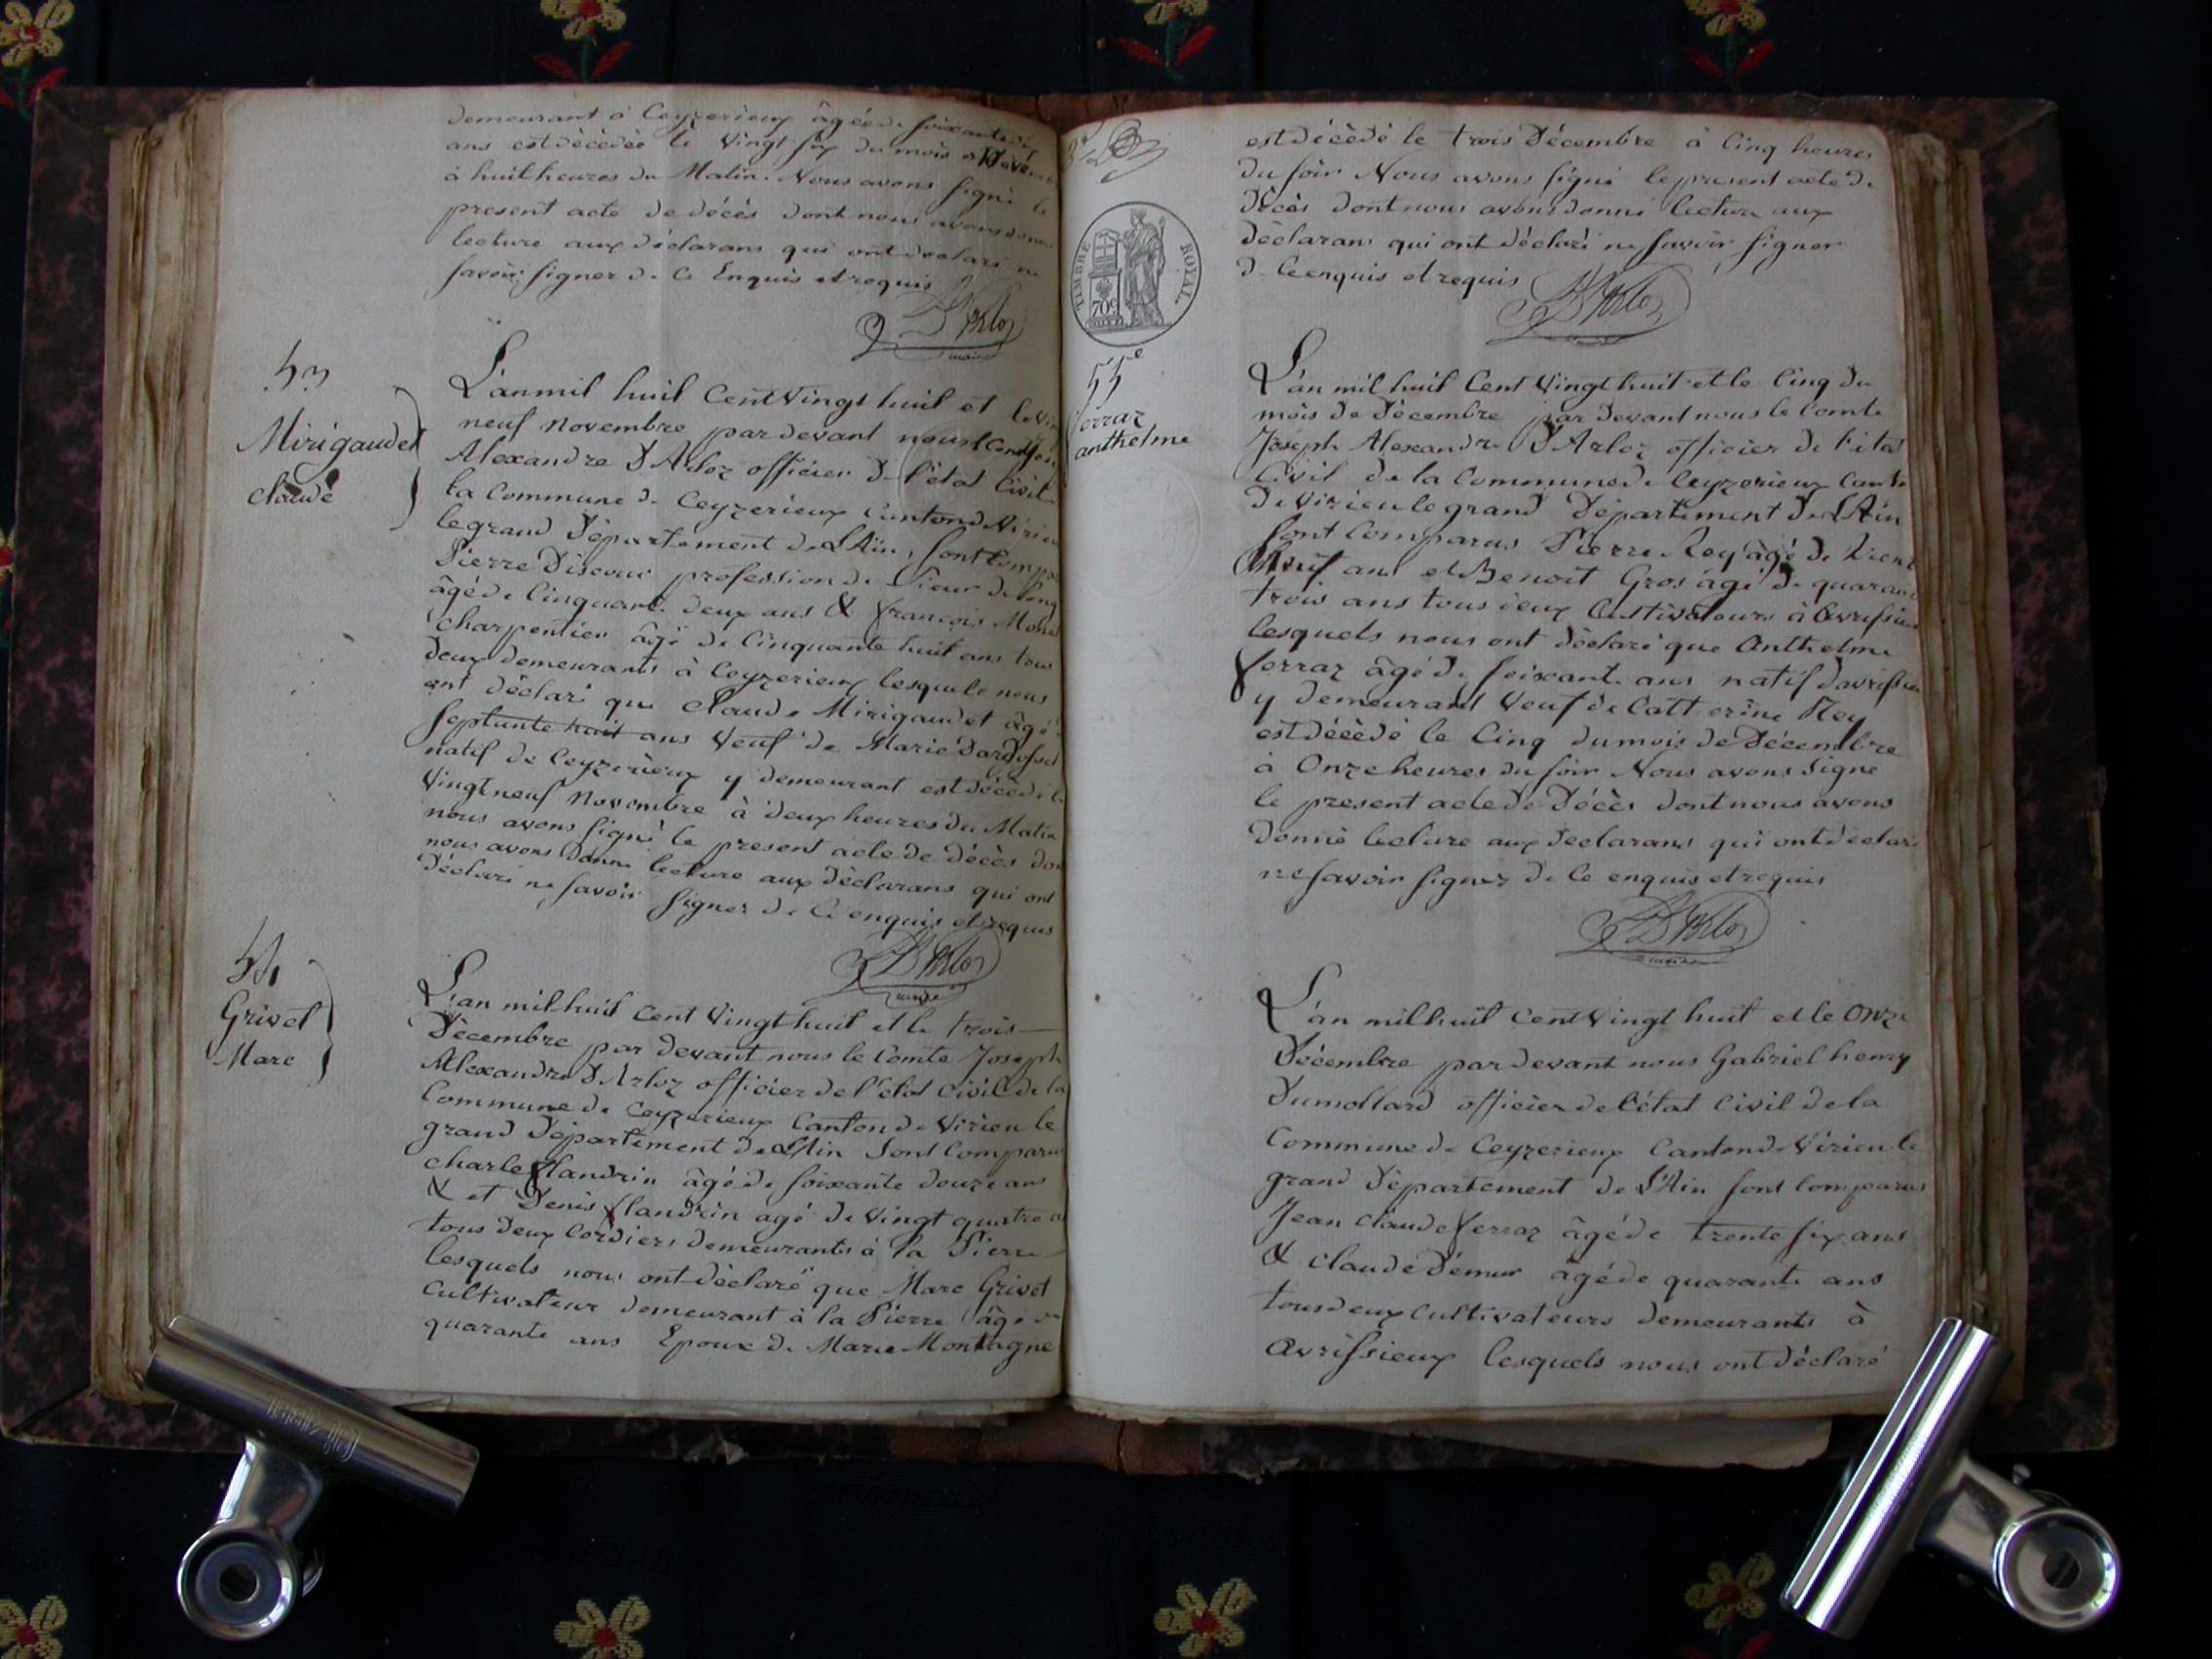 demeurant à Ceyzerieux âgée de soixante dix
ans est décédée le vingt six du mois de Novembre
à huit heures du Matin. Nous avons signé le
present acte de décès dont nous avons donné
lecture aux déclarans qui ont declaré ne
savoir signer de ce Enquis et requis
D'Arloz
maire
53
Mirigaudet
claude
L'an mil huit Cent Vingt huit et le vin
neuf novembre par devant nous le Comte Jos
Alexandre D'Arloz officier de l'état Civil
la Commune de Ceyzerieux Canton de Virieu
le grand Département de L'Ain, sont Compa
Pierre profession de Sieur de long
âgé de Cinquante deux ans & françois
charpentier âgé de Cinquante huit ans tous
deux demeurants à Ceyzerieux lesquels nous
ont déclaré que Claude Mirigaudet âgé
septante huit ans Veuf de Marie
natif de Ceyzerieux y demeurant est décédé le
Vingt neuf Novembre à deux heures du Matin
nous avons signé le present acte de décès don
nous avons donné lecture aux déclarans qui ont
déclaré ne savoir signer de Ce enquis et requis
D'Arloz
maire
54
Grivet
Marc
L'an mil huit Cent Vingt huit et le trois
Décembre par devant nous le Comte Joseph
Alexandre D'Arloz officier de l'etat Civil de la
Commune de Ceyzerieux Canton de Virieu le
grand Département de L'Ain sont Comparus
charle flandrin âgé de soixante douze ans
& et Denis flandrin agé de Vingt quatre a
tous deux Cordiers demeurants à la Pierre
lesquels nous ont déclaré que Marc Grivet
Cultivateur demeurant à la Pierre âgé de
quarante ans Epoux de Marie Montagne
TIMBRE ROYAL
70c
est décédé le trois Décembre à Cinq heures
du soir Nous avons signé le present acte de
décès dont nous avons donné lecture aux
déclarans qui ont déclaré ne savoir signer
de Ce enquis et requis
D'Arloz
maire
55e
ferraz
anthelme
L'an mil huit Cent Vingt huit et le Cinq du
mois de Décembre par devant nous le Comte
Joseph Alexandre D'Arloz officier de l'état
Civil de la Commune de Ceyzerieux Canto
de Virieu le grand Département de L'Ain
sont Comparus Pierre Rey âgé de trent
Neuf ans et Benoit Gros âgé de quaran
trois ans tous deux Cultivateurs à avrissieu
lesquels nous ont déclaré que Anthelme
ferraz âgé de soixante ans natif d'avrissieu
y demeurant Veuf de Catterine Rey
est décédé le Cinq du mois de Décembre
à Onze heures du soir Nous avons signé
le present acte de Décès dont nous avons
donné lecture aux déclarans qui ont déclaré
ne savoir signer de Ce enquis et requis
D'Arloz
maire
L'an mil huit Cent Vingt huit et le Onze
Décembre par devant nous Gabriel henry
Dumollard officier de l'état Civil de la
Commune de Ceyzerieux Canton de Virieu le
grand Département de L'Ain sont Comparus
Jean Claude ferraz âgé de trente six ans
& Claude Démur âgé de quarante ans
tous deux Cultivateurs demeurants à
Avrissieux lesquels nous ont déclaré